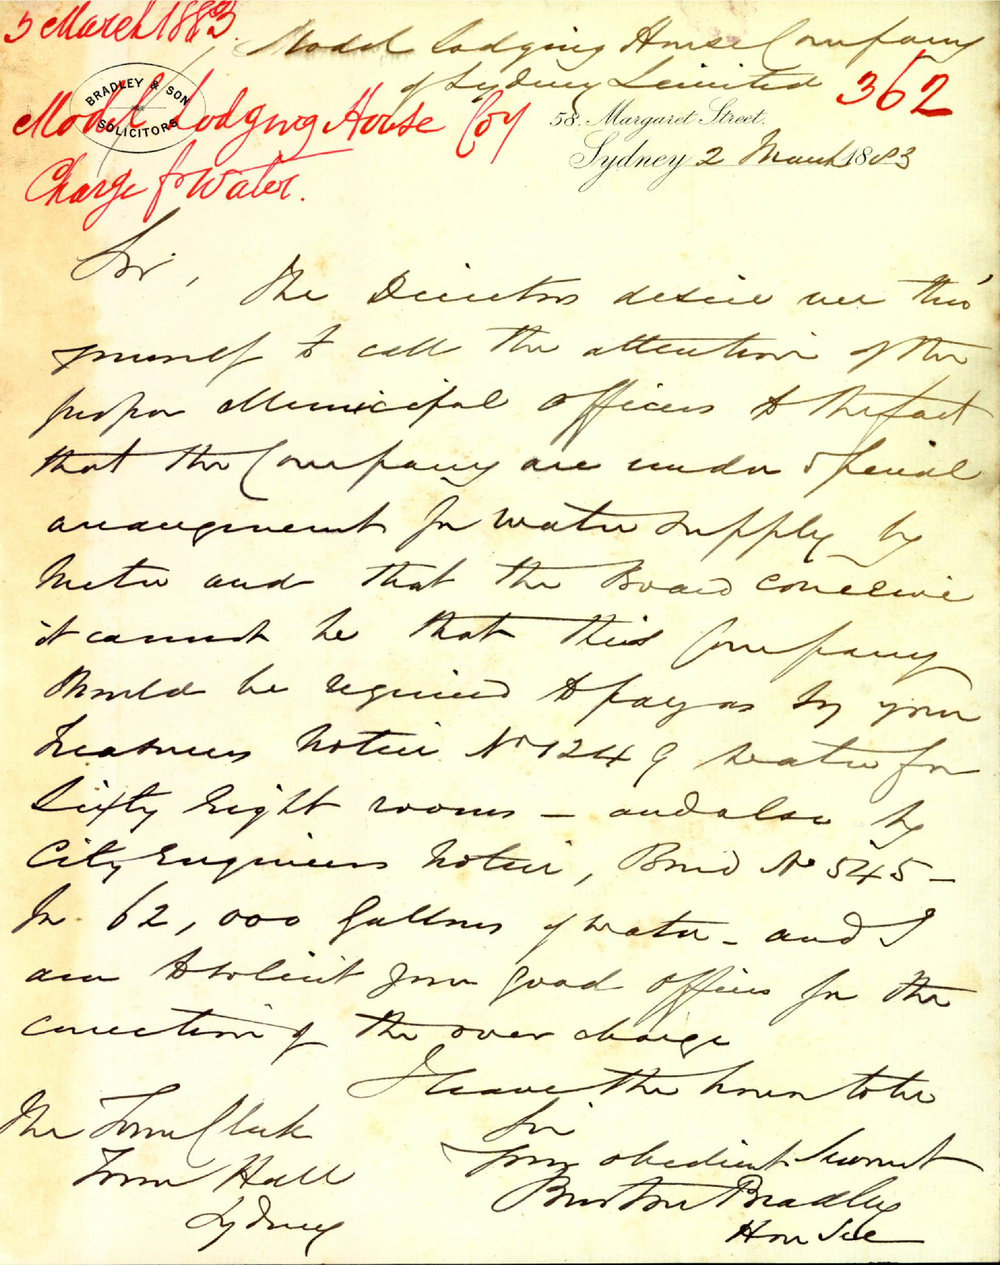 5 March 1883
Model Lodging House Company
of Sydney Limited
362
BRADLEY & SON
SOLICITORS
Model Lodging House Coy
Charge for Water.
58. Margaret Street.
Sydney 2 March 1883
Sir,
The Directors desire me thro'
yourself to call the attention of the
proper Municipal Officers to the fact
that the Company are under special
arrangement for water supply by
Meter and that the Board conceive
it cannot be that this Company
should be required to pay as by your
Treasurers Notice No 1249 water for
Sixty Eight rooms - and also by
City Engineers Notice, No 545 -
for 62,000 Gallons of water - and I
am to solicit your good offices for the
correction of the over charge
I have the honor to be
Sir
Your obedient Servant
Burton Bradley
Hon Sec
The Town Clerk
Town Hall
Sydney